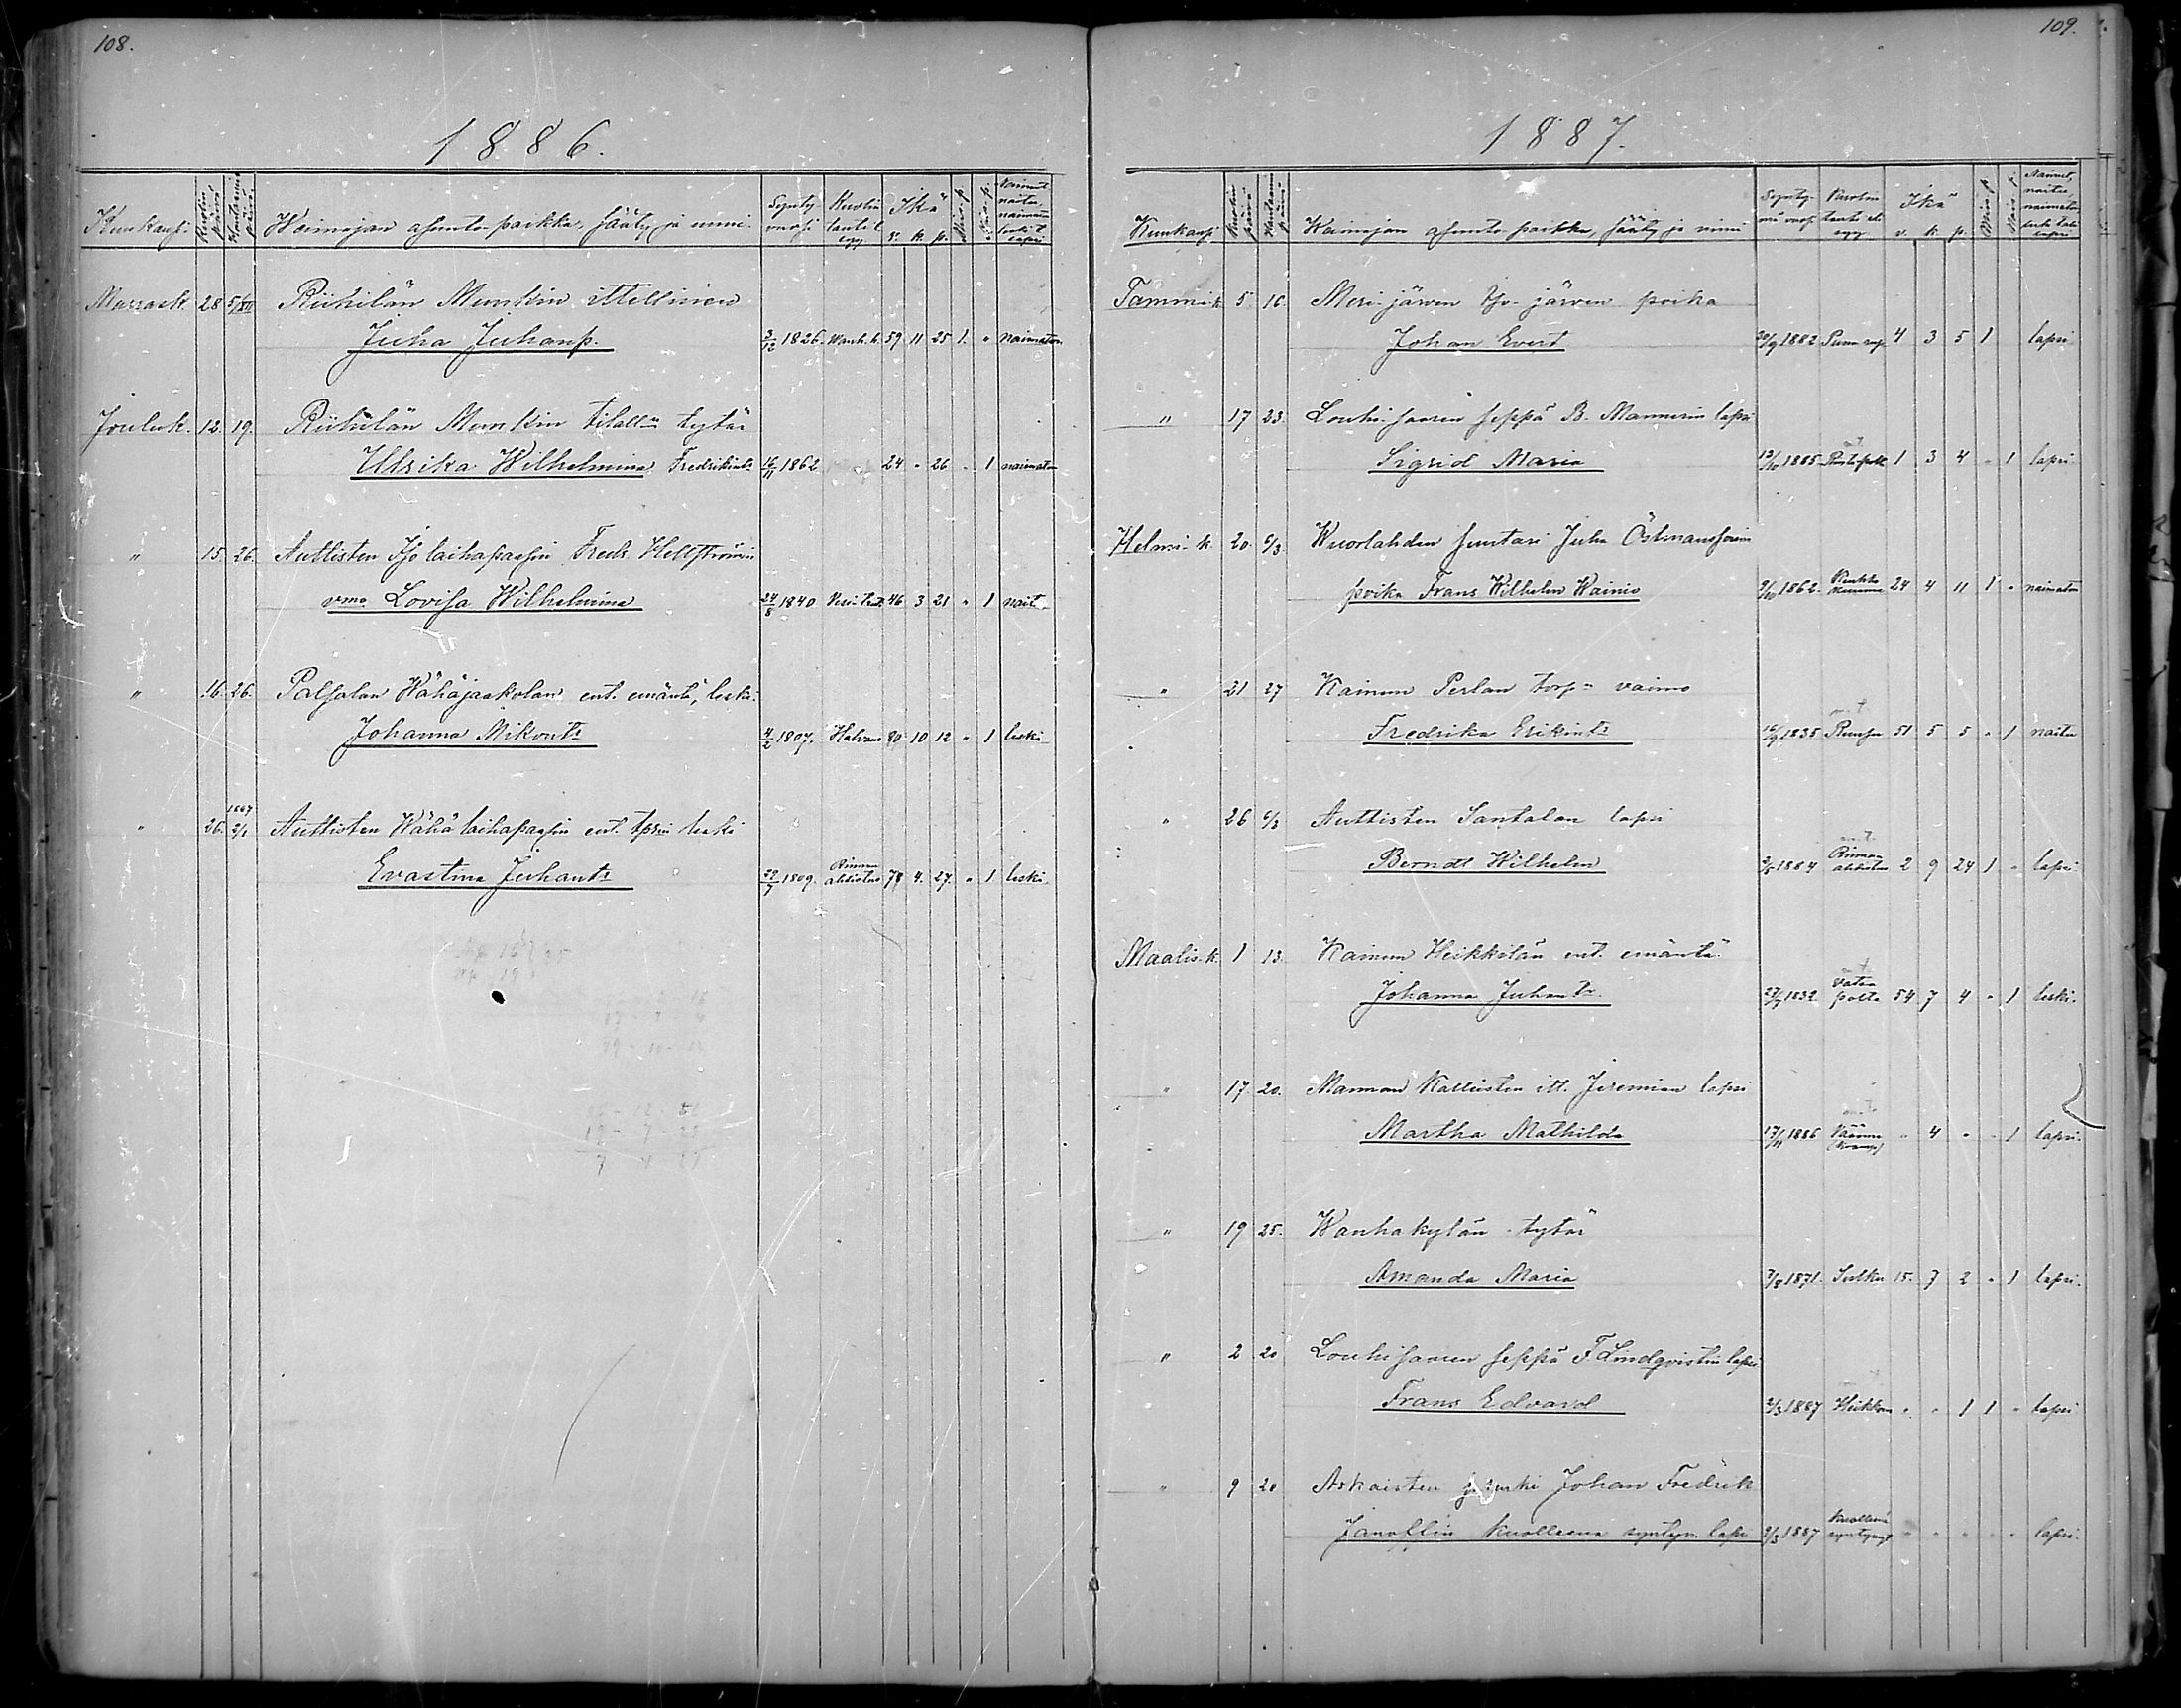 108.
1886.
Kuukausi Kuolin päivä Hautaamis päivä Wainajan asunto-paikka, sääty ja nimi. Synty vuosi Kuolin tauti t. syy Ikä v. k. p. Miesp. Naisp. Nainut, naitu, naimaton leski t. lapsi
Marrask. 28 5/XII Riihilän Munkin ittellinen
Juha Juhanp. 3/12 1826. Wanh. h. 59 11 25 1. " naimaton
Jouluk. 12. 19. Riihilän Munkin tilall:n tytär
Ulrika Wilhelmina Fredrikint. 16/11 1862 24 " 26 " 1 naimaton
" 15. 26. Auttisten Iso laihapassin Freds Hellströmin
vmo Lovisa Wilhelmina 24/8 1840 Vesi taut. 46 3 21 " 1 naitu
" 16. 26. Palsalan Wähäjaakolan ent. emäntä, leski.
Johanna Mikont: 4/2 1807. Halvaus 80 10 12 " 1 leski
" 26. 1887 2/1 Auttisten Wähä laihapassin ent. tprin leski
Evastina Juhant: 29/7 1809. Rinnan ahdistus 78 4. 27. " 1 leski
109.
1887.
Kuukausi Kuolin päivä Hautaam. päivä Wainajan asunto-paikka, sääty ja nimi Synty- mä vuosi Kuolin tauti eli syy Ikä v. k. p. Mies p. Nais p. Nainut, naitu, naimaton leski tali lapsi
Tammi-k 5. 16. Meri-järven Yli-järven poika
Johan Evert 30/9 1882 4 3 5 1 lapsi
" 17 23. Louhi-saaren seppä B. Mannerin lapsi
Sigrid Maria 13/10 1885 1 3 4 " 1 lapsi.
Helmi-k. 20. 6/3 Wuorlahden suutari Juha Östmanssonin
poika Frans Wilhelm Wainio 9/10 1862. Keuhko kuume 24 4 11 1 " naimaton
" 21 27 Kainun Perlan torp:n vaimo
Fredrika Erikint: 16/9 1835 51 5 5 " 1 naitu
" 26 6/3 Auttisten Santalan lapsi
Berndt Wilhelm 2/5 1884 Rinnan ahdistus 2 9 24 1 " lapsi
Maalis-k. 1 13. Kainun Heikkilän ent. emäntä
Johanna Juhant:. 27/7 1832 Vatsa polte 54 7 4 " 1 leski.
" 17. 20. Mannan Kalliisten itt. Jeremian lapsi
Martha Mathilda 17/11 1886 " 4 " " 1 lapsi.
" 19 25. Wanhakylän tytär
Amanda Maria 7/8 1871. 15. 7 2 " 1 lapsi.
" 2 20 Louhisaaren seppä F. Lindqvistin lapsi
Frans Edvard 2/3 1887 Heikkous " " 1 1 " lapsi
" 9 20 Askaisten Johan Fredrik
Janoffin kuolleena syntyn. lapsi 9/3 1887 Kuolleena syntynyt " " " " " lapsi.